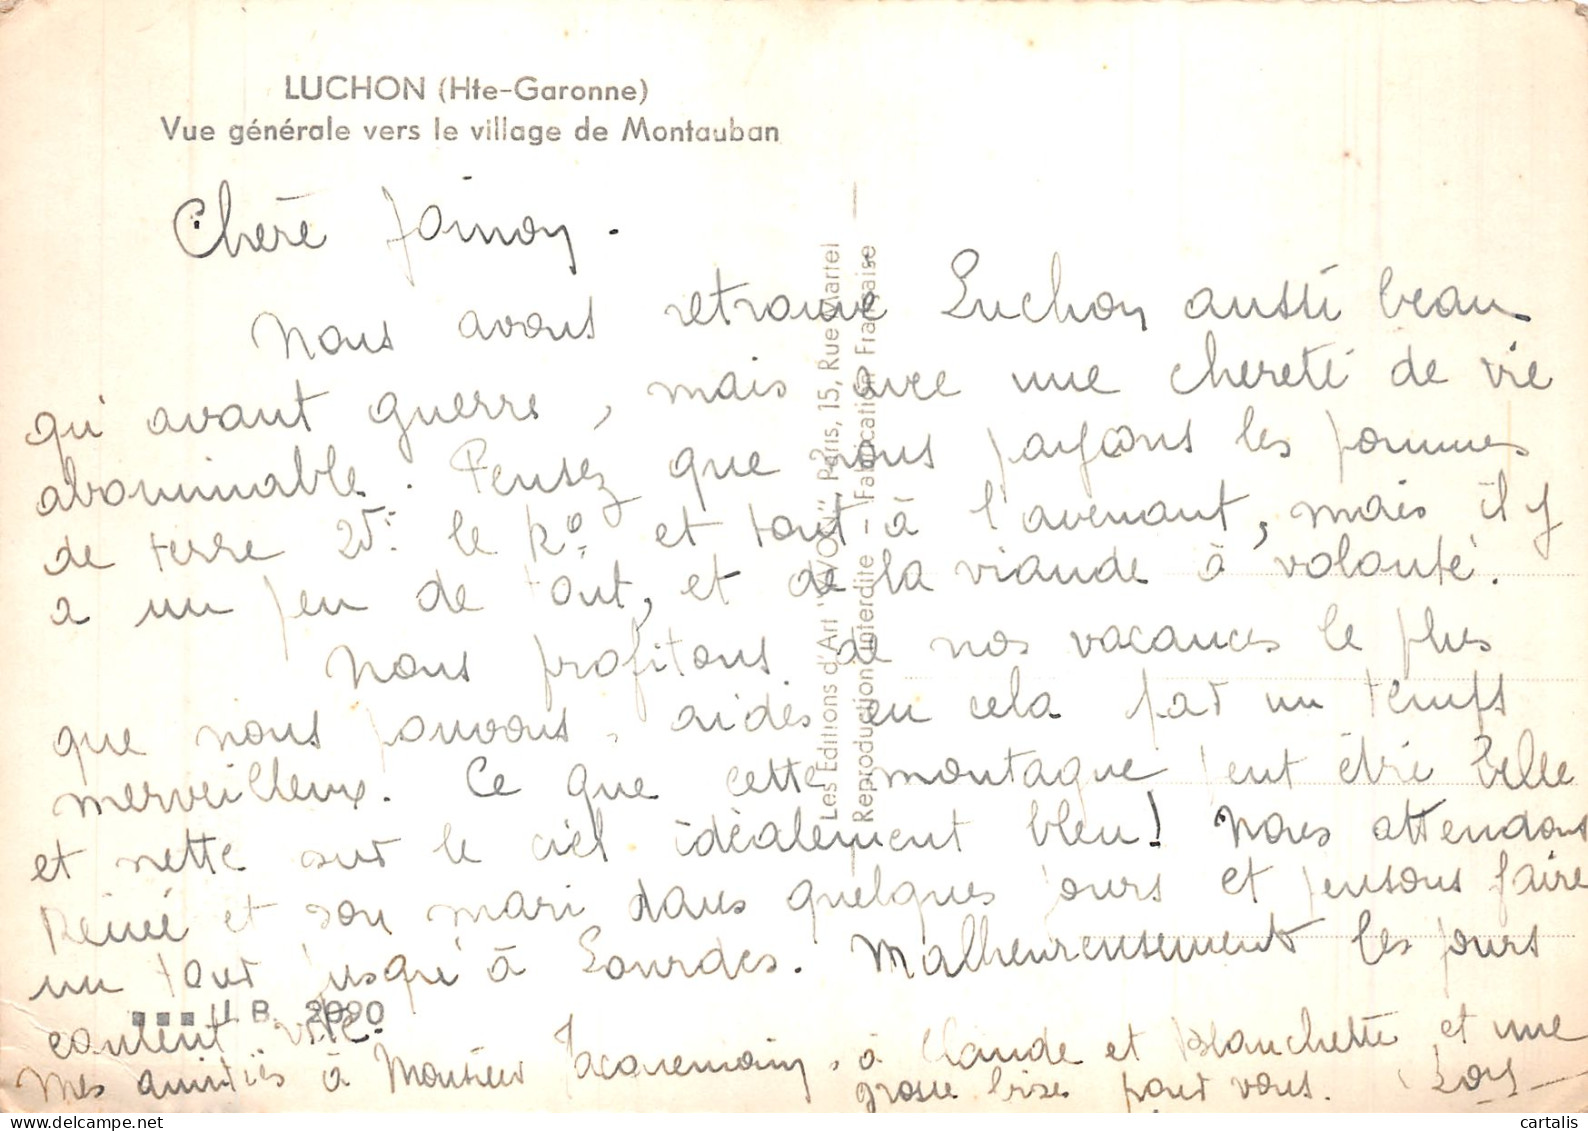 LUCHON (Hte-Garonne)
Vue générale vers le village de Montauban
Chère
Nous avons retrouvé Luchon aussi beau
qu'avant guerre, mais avec une chereté de vie
abominable. Pensez que nous payons les pommes
de terre le k° et tout à l'avenant, mais il y
a un peu de tout, et de la viande à volonté.
Nous profitons de nos vacances le plus
que nous pouvons, aidés en cela par un temps
merveilleux. Ce que cette montagne peut être belle
et nette sur le ciel idéalement bleu! Nous attendons
Renée et son mari dans quelques jours et pensons faire
un tour jusqu'à Lourdes. Malheureusement les jours
coulent vite.
Mes amitiés à Monsieur à Claude et Blanchette et une
grosse bise pour vous.
Les Editions d'Art "YVON", Paris, 15, Rue Martel
Reproduction interdite - Fabrication Française
I. B. 2090
cartalis